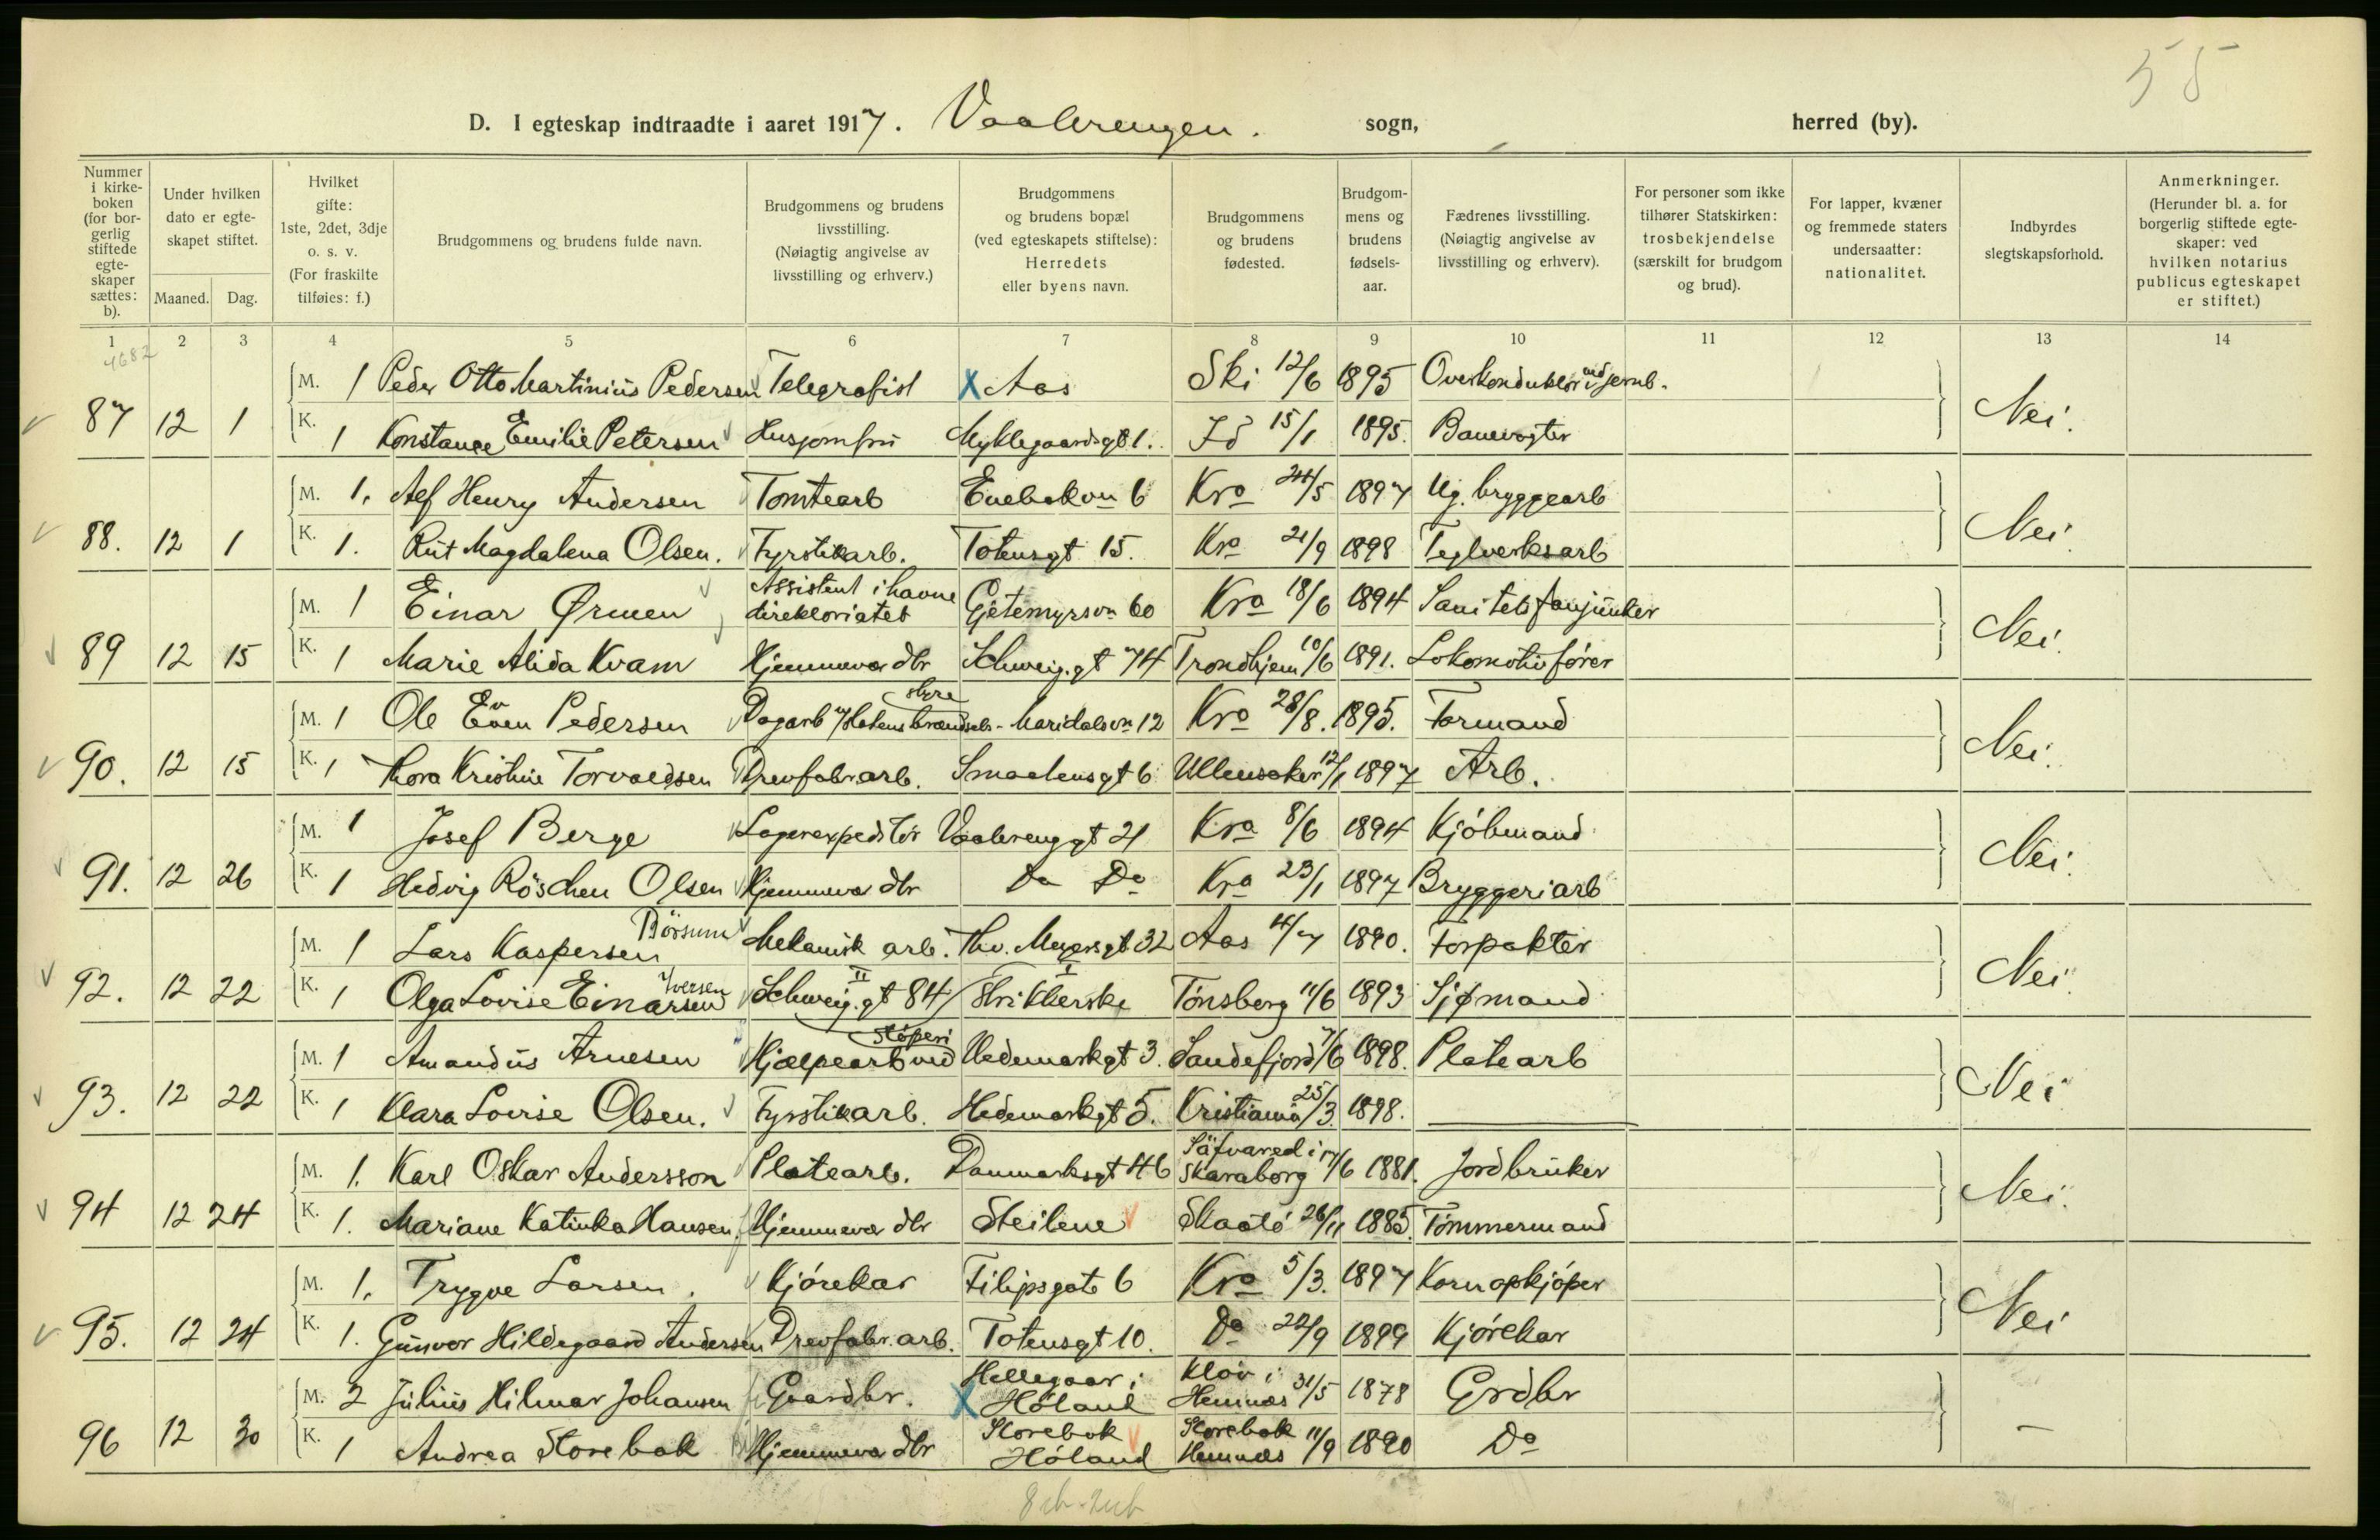 55
D. I egteskap indtraadte i aaret 1917. Vaalerengen. sogn, herred (by).
Nummer i kirkeboken (for borgerlig stiftede egteskaper sættes: b).
Under hvilken dato er egteskapet stiftet.
Maaned. Dag.
Hvilket gifte: 1ste, 2det, 3dje o. s. v. (For fraskilte tilføies: f.)
Brudgommens og brudens fulde navn.
Brudgommens og brudens livsstilling. (Nøiagtig angivelse av livsstilling og erhverv.)
Brudgommens og brudens bopæl (ved egteskapets stiftelse): Herredets eller byens navn.
Brudgommens og brudens fødested.
Brudgommens og brudens fødselsaar.
Fædrenes livsstilling. (Nøiagtig angivelse av livsstilling og erhverv).
For personer som ikke tilhører Statskirken: trosbekjendelse (særskilt for brudgom og brud).
For lapper, kvæner og fremmede staters undersaatter: nationalitet.
Indbyrdes slegtskapsforhold.
Anmerkninger. (Herunder bl. a. for borgerlig stiftede egteskaper: ved hvilken notarius publicus egteskapet er stiftet.)
1 2 3 4 5 6 7 8 9 10 11 12 13 14
4682
M. 1 Peder Otto Martinius Pedersen Telegrafist X Aas Ski 12/6 1895 Overkonduktör ved jernb.
87 12 1 K. 1 Konstance Emilie Petersen Husjomfru Myklegaardsgt 1. Id 15/1 1895. Banevogter Nei.
M. 1. Alf Henry Andersen Tomtearb Enebakvn 6 Kra 24/5 1897 Ug. bryggearb
88. 12 1 K. 1. Rut Magdalena Olsen. Fyrstikarb. Totensgt 15. Kra 21/9 1898 Teglverksarb Nei.
M. 1 Einar Ørmen Assistent i havnedirektoriatet Gjetemyrsvn 60 Kra 18/6 1894 Sanitetsfanjunker
89 12 15 K. 1 Marie Alida Kvam Hjemmevær. dtr Schweig.gt 74 Trondhjem 10/6 1891. Lokomotivfører Nei.
M. 1 Ole Even Pedersen Dagarb v/Statens brændselsstyre Maridalsvn 12 Kra 28/8. 1895. Formand
90. 12 15 K. 1 Thora Kristine Torvaldsen Drevfabr.arb. Smaalensgt 6 Ullensaker 12/1 1897 Arb. Nei.
M. 1 Josef Berge Lagerexpeditör Vaalerenggt 21 Kra 8/6 1894 Kjöbmand
91. 12 26 K. 1 Hedvig Röschen Olsen Hjemmevær. dtr Do Do Kra 23/1 1897 Bryggeriarb Nei.
M. 1 Lars Kaspersen Börsum Mekanisk arb. Thv. Meyersgt 32 Aas 4/7 1890. Forpakter
92. 12 22 K. 1 Olga Lovise Einarsen Iversen Schweig.gt 84 II Strikkerske I Tönsberg 11/6 1893 Sjømand Nei.
M. 1 Amandus Arnesen Hjælpearb ved Stöperi Hedemarkgt 3. Sandefjord 7/6 1898. Platearb
93. 12 22 K. 1 Klara Lovise Olsen. Fyrstikarb. Hedemarkgt 5. Kristiania 25/3. 1898. Nei
M. 1. Karl Oskar Andersson Platearb. Danmarksgt 46 Säfvared i Skaraborg 17/6 1881. Jordbruker
94 12 24 K. 1. Mariane Katinka Hansen. Hjemmevær. dtr Steilene Skaatö 26/11 1885. Tömmermand Nei.
M. 1. Trygve Larsen. Kjörekar Filipsgate 6 Kra 5/3. 1897 Kornopkjöper
95. 12 24 K. 1. Gunvor Hildegaard Andersen Drevfabr.arb. Totensgt 10. Do 22/9 1899 Kjörekar Nei
M. 2 Julius Hilmar Johansen Gaardbr. X Hellegaar i Höland Kløv i Hemnæs 31/5 1878 Grdbr
96 12 30 K. 1 Andrea Storebak Hjemmevær. dtr Storebak Höland Storebak Hemnæs 11/9 1890 Do —